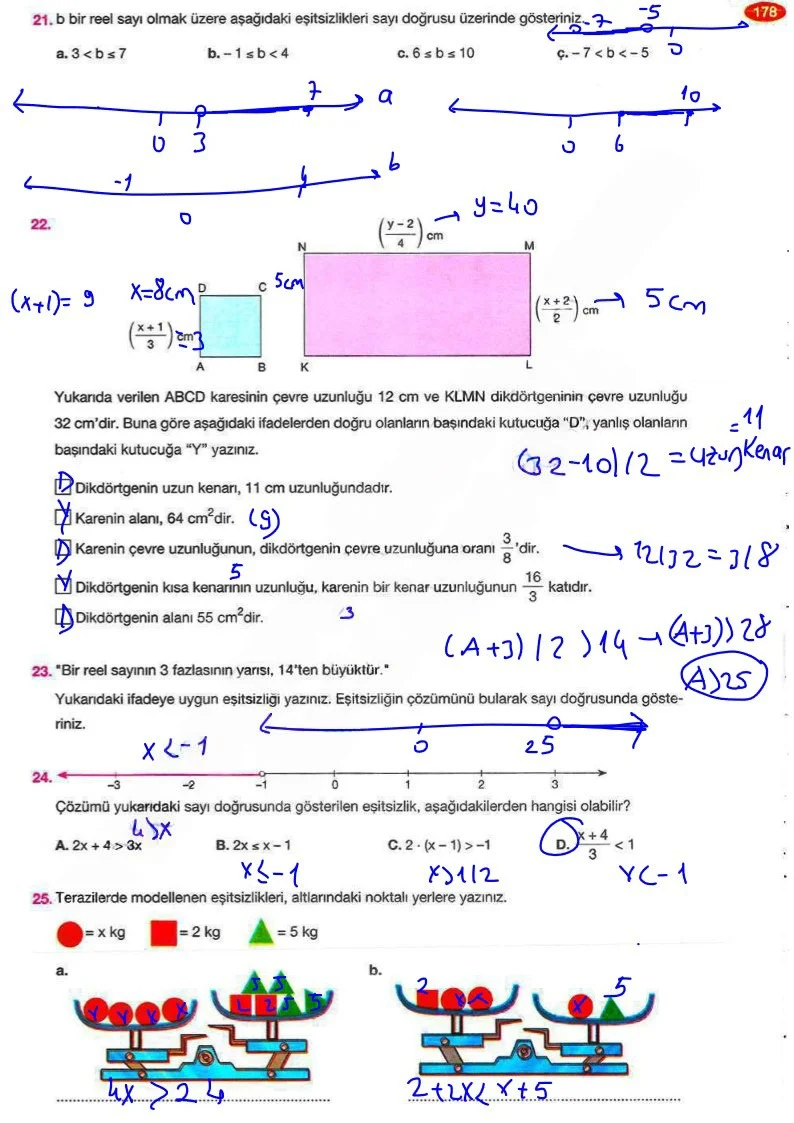 178
21. b bir reel sayı olmak üzere aşağıdaki eşitsizlikleri sayı doğrusu üzerinde gösteriniz.
-7 -5
0
a. 3 < b ≤ 7 b. – 1 ≤ b < 4 c. 6 ≤ b ≤ 10 ç. – 7 < b < – 5
7 a
0 3
10
0 6
-1 4 b
0
22.
(y – 2 / 4) cm → y=40
N M
(x+1)= 9 x=8cm D C 5cm
(x + 1 / 3) cm =3
(x + 2 / 2) cm → 5 cm
A B K L
Yukarıda verilen ABCD karesinin çevre uzunluğu 12 cm ve KLMN dikdörtgeninin çevre uzunluğu
32 cm'dir. Buna göre aşağıdaki ifadelerden doğru olanların başındaki kutucuğa "D", yanlış olanların
başındaki kutucuğa "Y" yazınız.
(32-10)/2 = uzun kenar =11
D Dikdörtgenin uzun kenarı, 11 cm uzunluğundadır.
Y Karenin alanı, 64 cm²dir. (9)
D Karenin çevre uzunluğunun, dikdörtgenin çevre uzunluğuna oranı 3/8 'dir. → 12/32 = 3/8
Y Dikdörtgenin kısa kenarının uzunluğu, karenin bir kenar uzunluğunun 16/3 katıdır.
5
3
D Dikdörtgenin alanı 55 cm²dir.
(A+3)/2 > 14 → (A+3) > 28
A>25
23. "Bir reel sayının 3 fazlasının yarısı, 14'ten büyüktür."
Yukarıdaki ifadeye uygun eşitsizliği yazınız. Eşitsizliğin çözümünü bularak sayı doğrusunda göste-
riniz.
0 25
x < -1
24.
–3 –2 –1 0 1 2 3
Çözümü yukarıdaki sayı doğrusunda gösterilen eşitsizlik, aşağıdakilerden hangisi olabilir?
4 > x
A. 2x + 4 > 3x B. 2x ≤ x – 1 C. 2 · (x – 1) > –1 D. x + 4 / 3 < 1
x ≤ -1 x > 1/2 x < -1
25. Terazilerde modellenen eşitsizlikleri, altlarındaki noktalı yerlere yazınız.
= x kg = 2 kg = 5 kg
a. b.
x x x x 5 5 2 2 5 5
2 x x x 5
4x > 24 2+2x < x+5